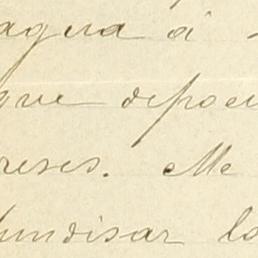 agua á
que depoe
reses. Me
fundisar la